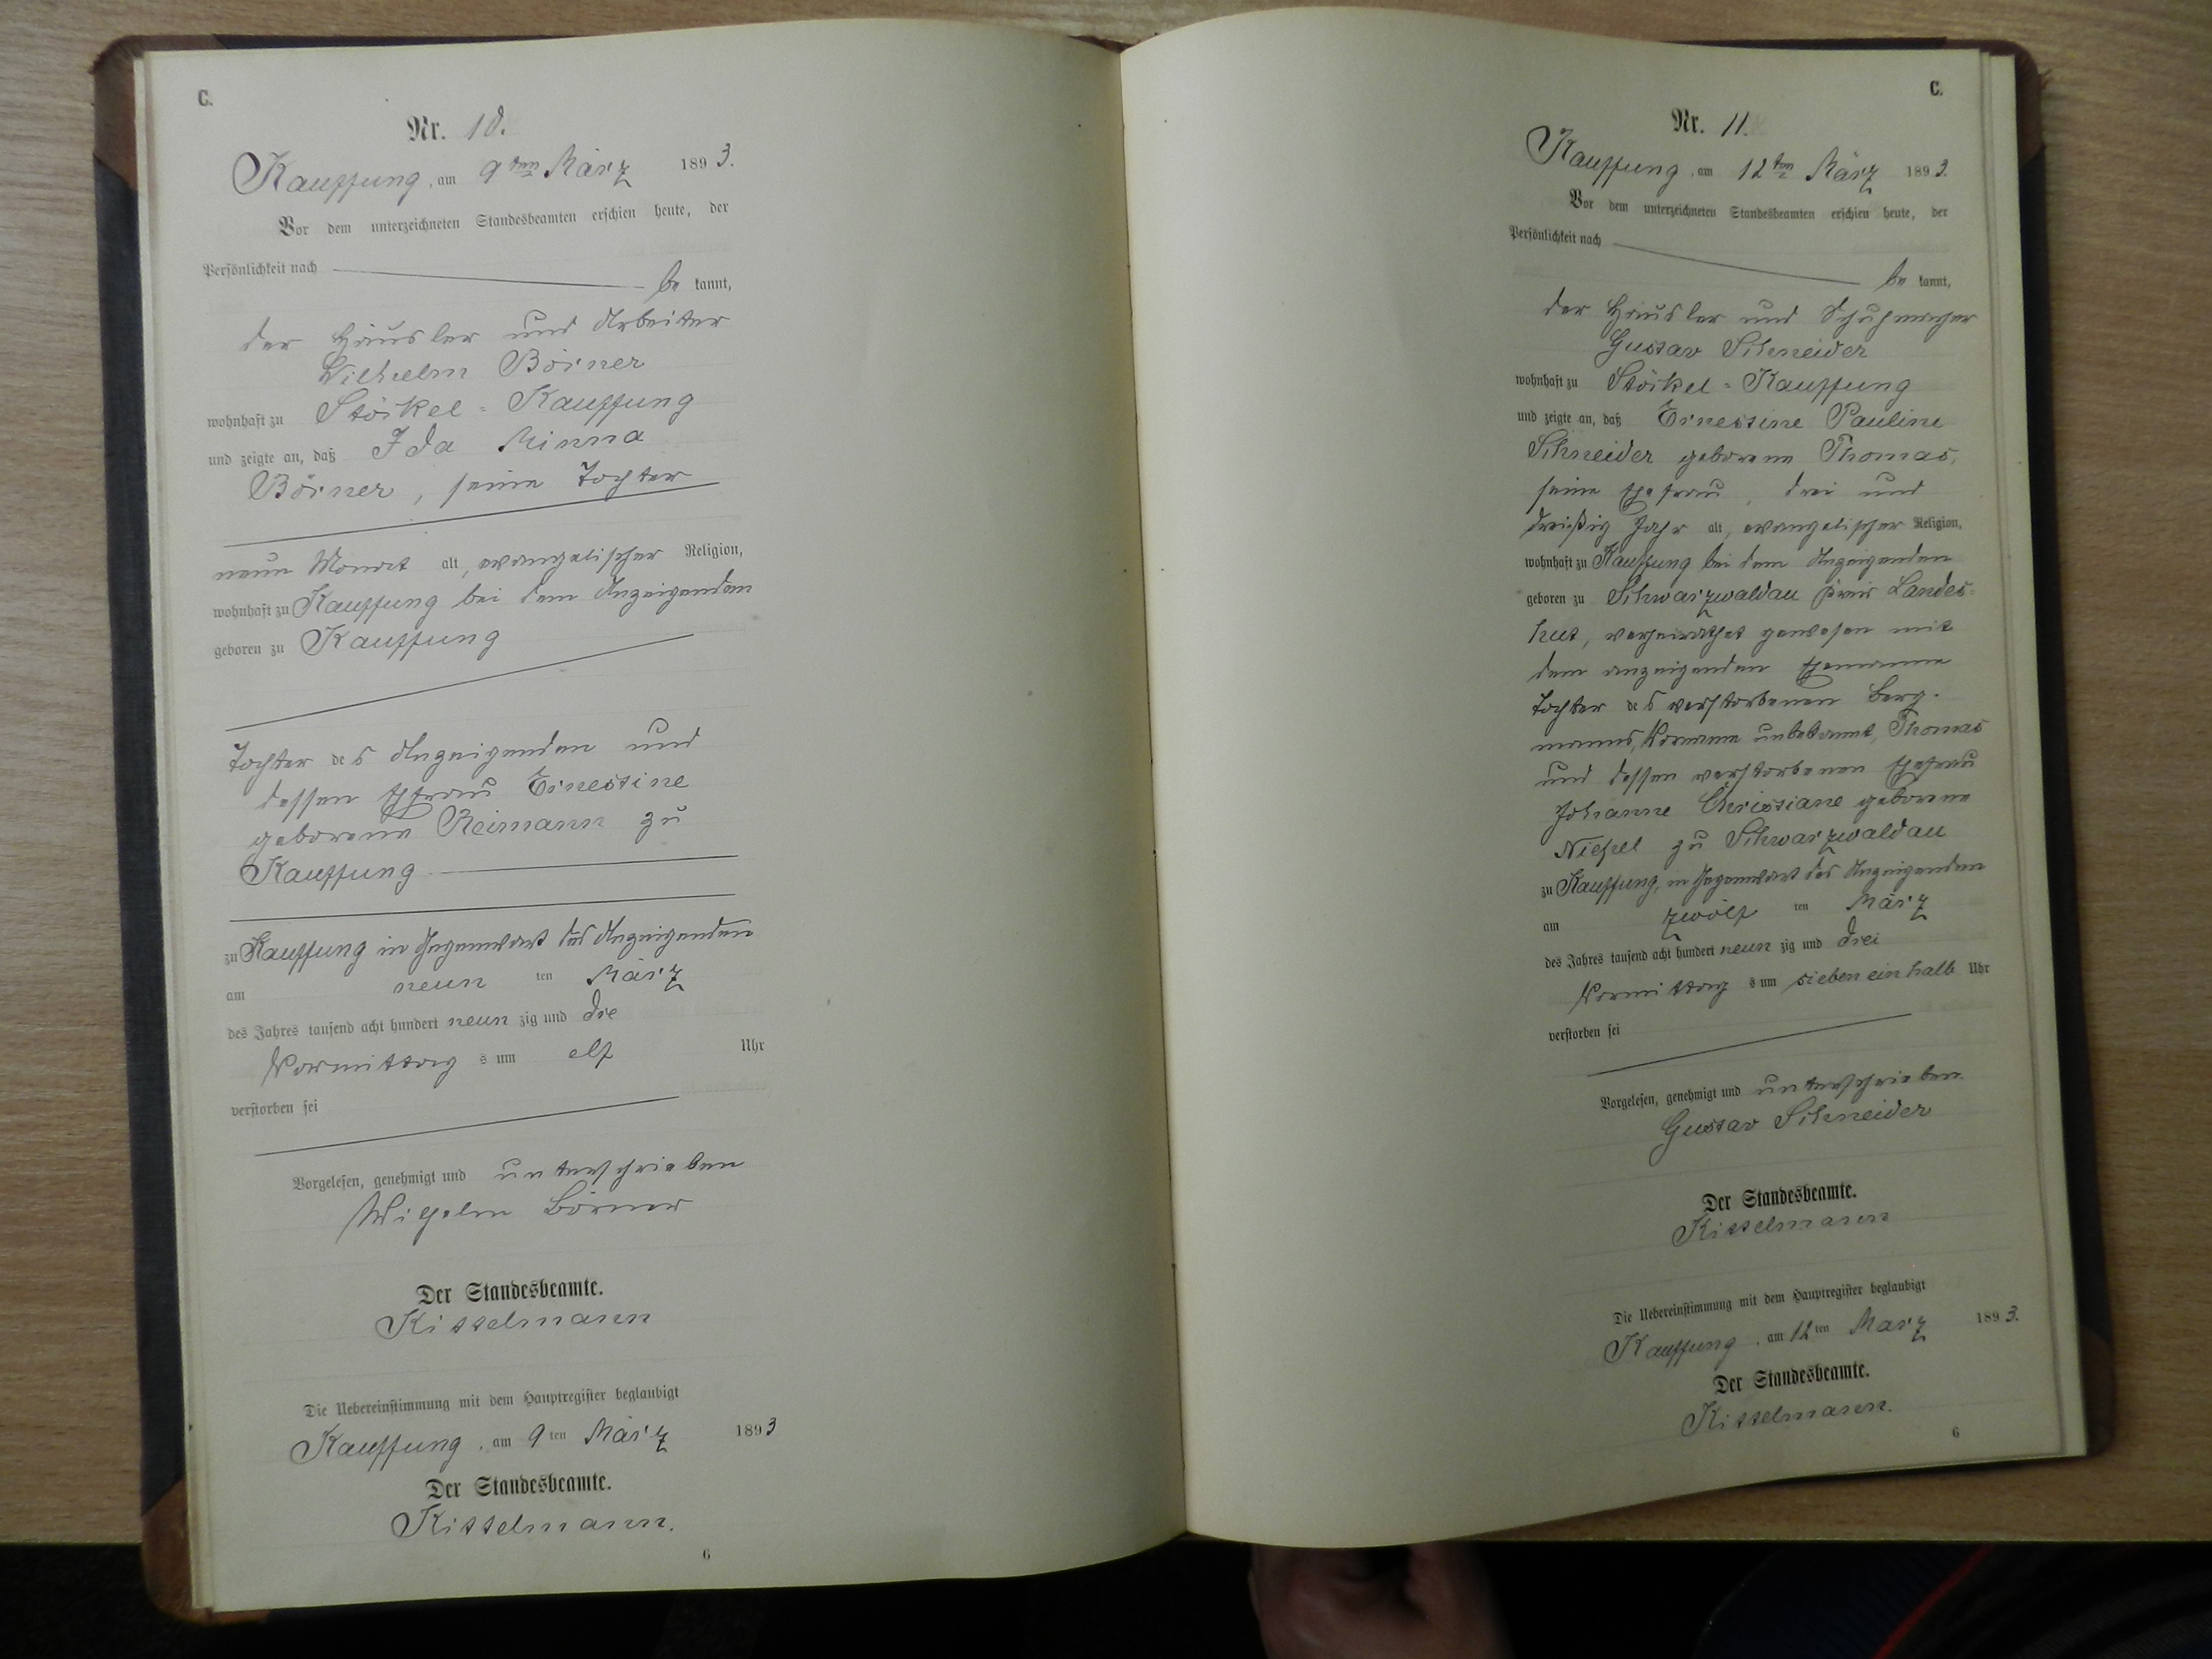 C.
Nr. 10.
Kauffung, am 9ten März 1893.
Vor dem unterzeichneten Standesbeamten erschien heute, der
Persönlichkeit nach
be kannt,
der Häusler und Arbeiter
Wilhelm Börner
wohnhaft zu Stöckel-Kauffung
und zeigte an, daß Ida Minna
Börner, seine Tochter
neun Monat alt, evangelischer Religion,
wohnhaft zu Kauffung bei dem Anzeigenden
geboren zu Kauffung
Tochter des Anzeigenden und
dessen Ehefrau Ernestine
geborene Reimann zu
Kauffung
zu Kauffung in Gegenwart des Anzeigenden
am neun ten März
des Jahres tausend acht hundert neun zig und drei
Vormittag s um elf Uhr
verstorben sei
Vorgelesen, genehmigt und unterschrieben
Wilhelm Börner
Der Standesbeamte.
Kisselmann
Die Uebereinstimmung mit dem Hauptregister beglaubigt
Kauffung, am 9ten März 1893
Der Standesbeamte.
Kisselmann.
6
C.
Nr. 11.
Kauffung, am 12ten März 1893.
Vor dem unterzeichneten Standesbeamten erschien heute, der
Persönlichkeit nach
be kannt,
der Häusler und Schuhmacher
Gustav Schneider
wohnhaft zu Stöckel-Kauffung
und zeigte an, daß Ernestine Pauline
Schneider geborene Thomas,
seine Ehefrau, drei und
dreißig Jahr alt, evangelischer Religion,
wohnhaft zu Kauffung bei dem Anzeigenden
geboren zu Schwarzwaldau Kreis Landes-
hut, verheirathet gewesen mit
dem anzeigenden Ehemanne
Tochter des verstorbenen Berg-
manns, Vorname unbekannt, Thomas
und dessen verstorbenen Ehefrau
Johanne Christiane geborene
zu Schwarzwaldau
zu Kauffung, in Gegenwart des Anzeigenden
am zwölf ten März
des Jahres tausend acht hundert neun zig und drei
Vormittag s um sieben einhalb Uhr
verstorben sei
Vorgelesen, genehmigt und unterschrieben.
Gustav Schneider
Der Standesbeamte.
Kisselmann
Die Uebereinstimmung mit dem Hauptregister beglaubigt
Kauffung, am 12ten März 1893.
Der Standesbeamte.
Kisselmann.
6